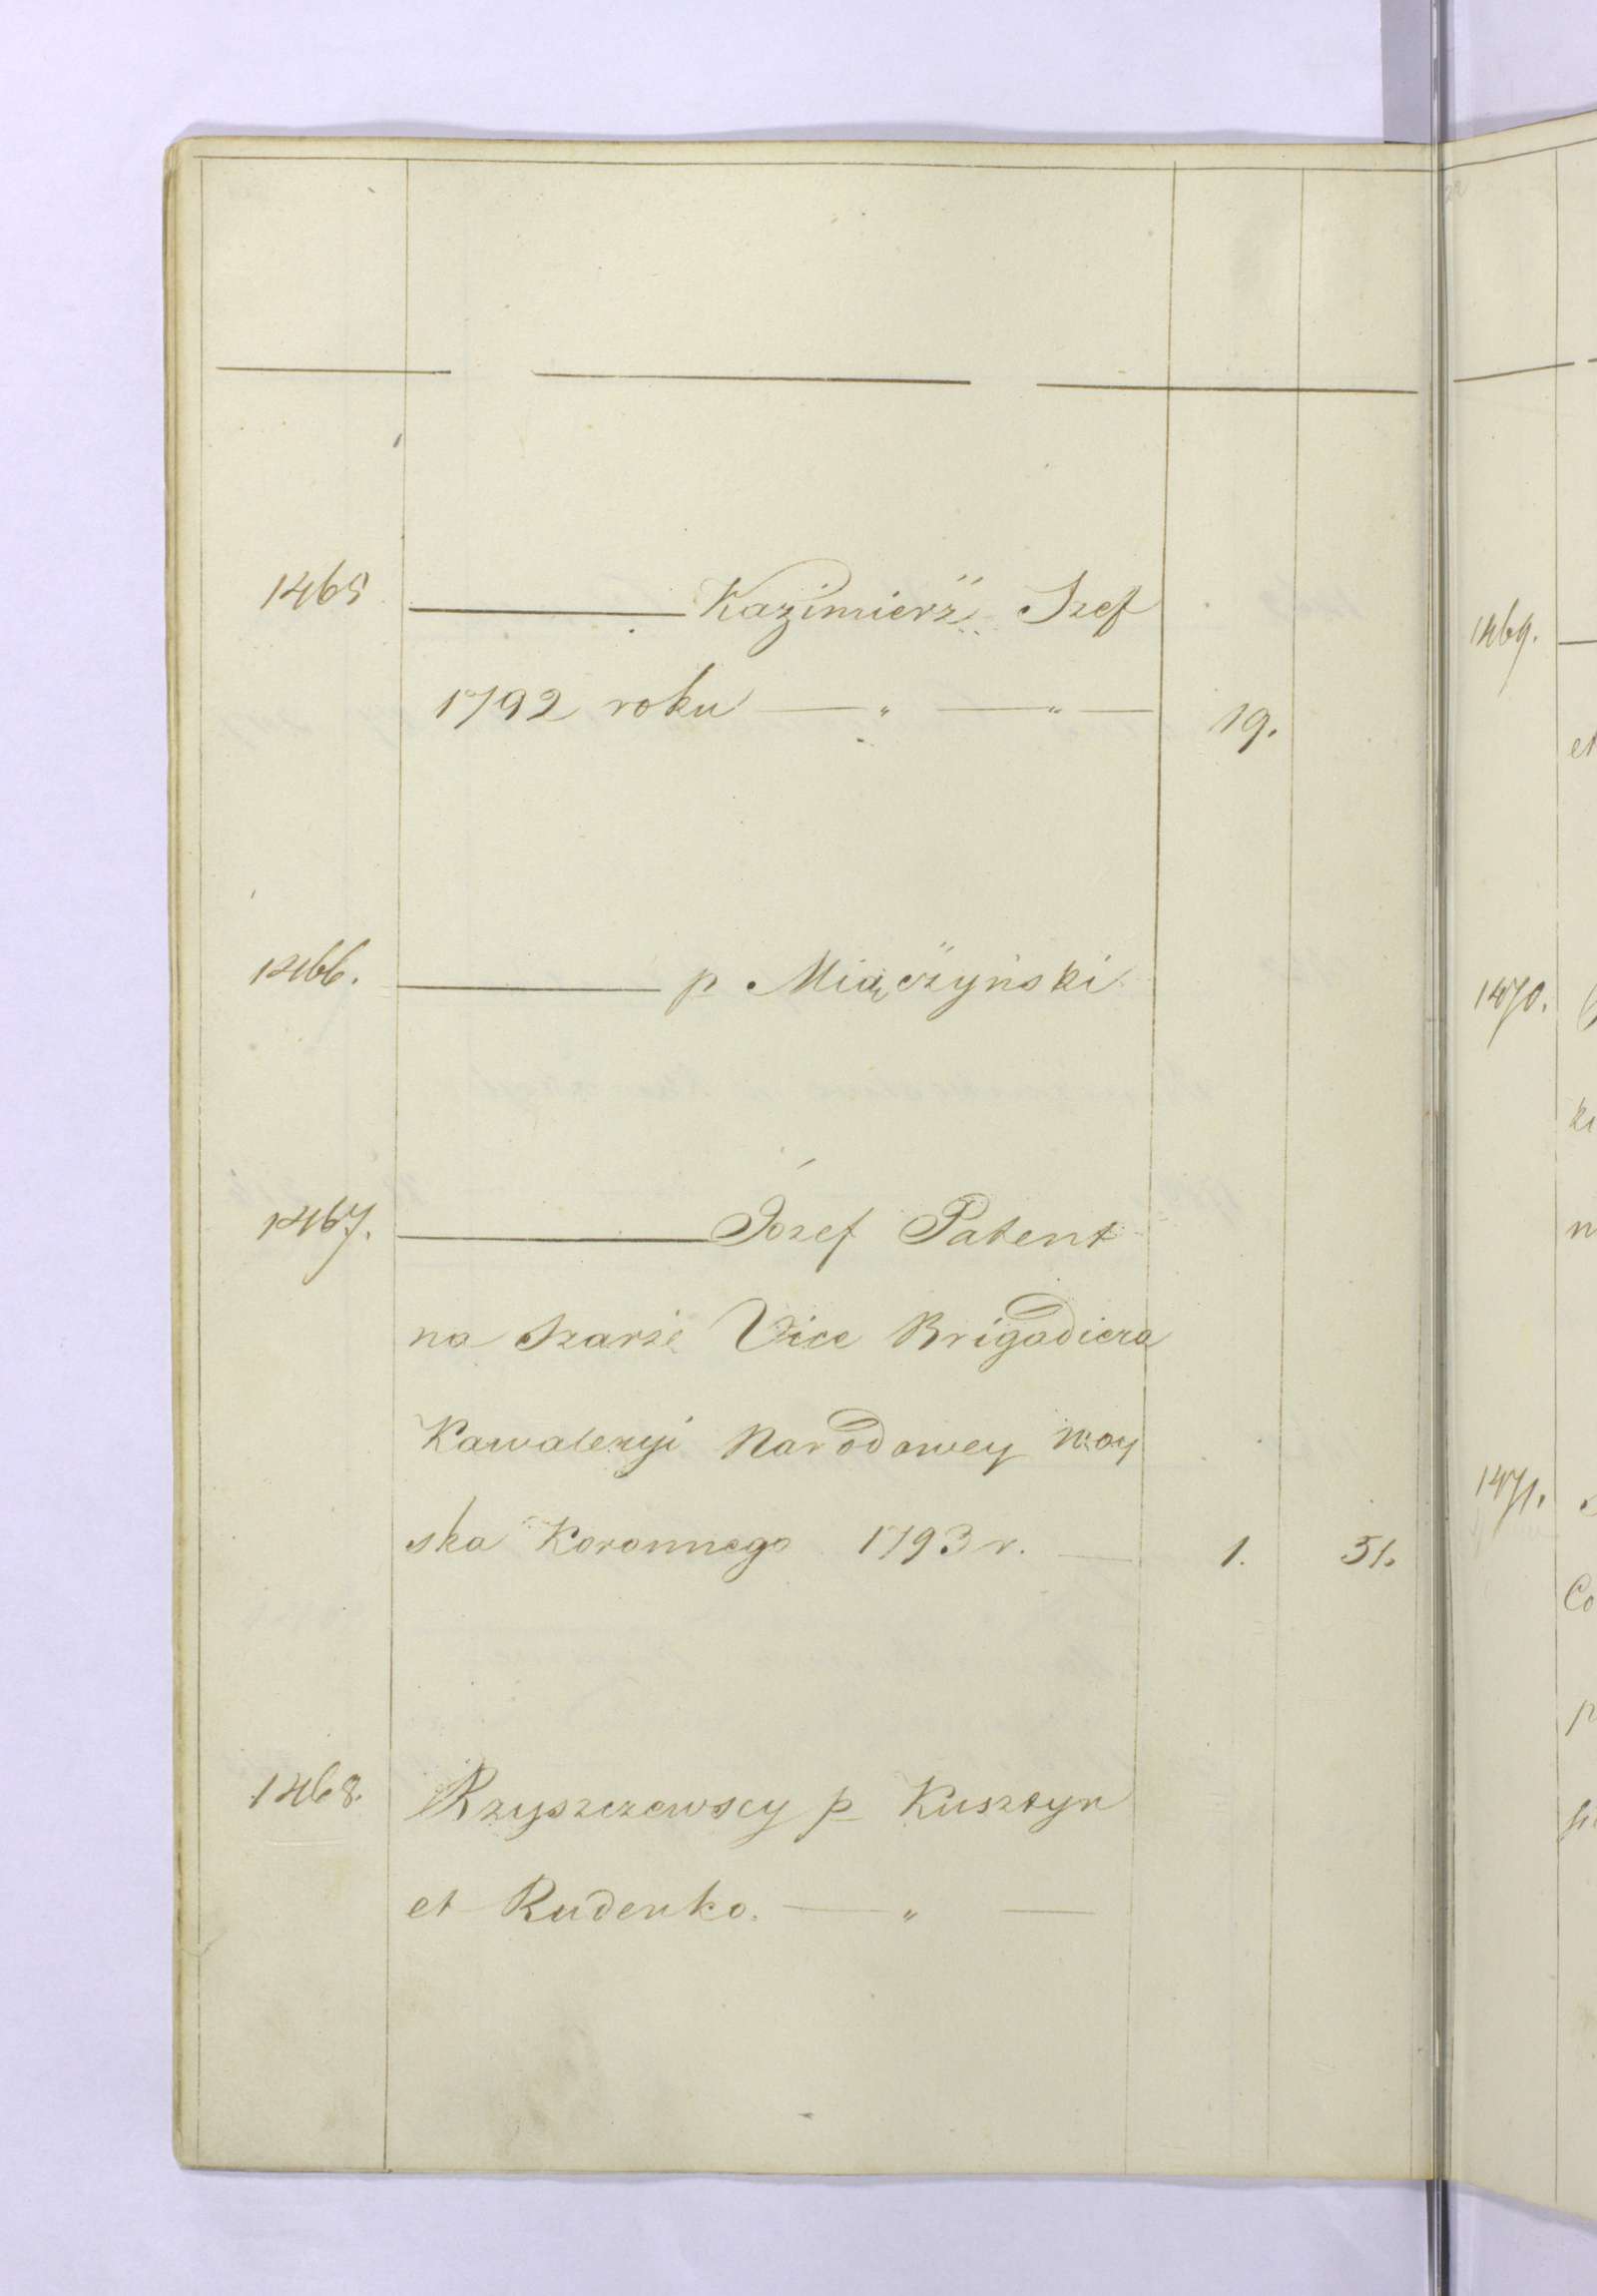 1465 ——— Kazimierz Szef
1792 roku — „ — „ — 19.
1466. ——— p Miączyński
1467. ——— Józef Patent
na szarże Vice Brigadiera
Kawaleryi Narodowey woy
ska Koronnego 1793 r. — 1. 51.
1468. Rzyszczewscy p Kusztyn
et Rudenko. — „ —
1469.
et
1470.
ki
1471.
Co